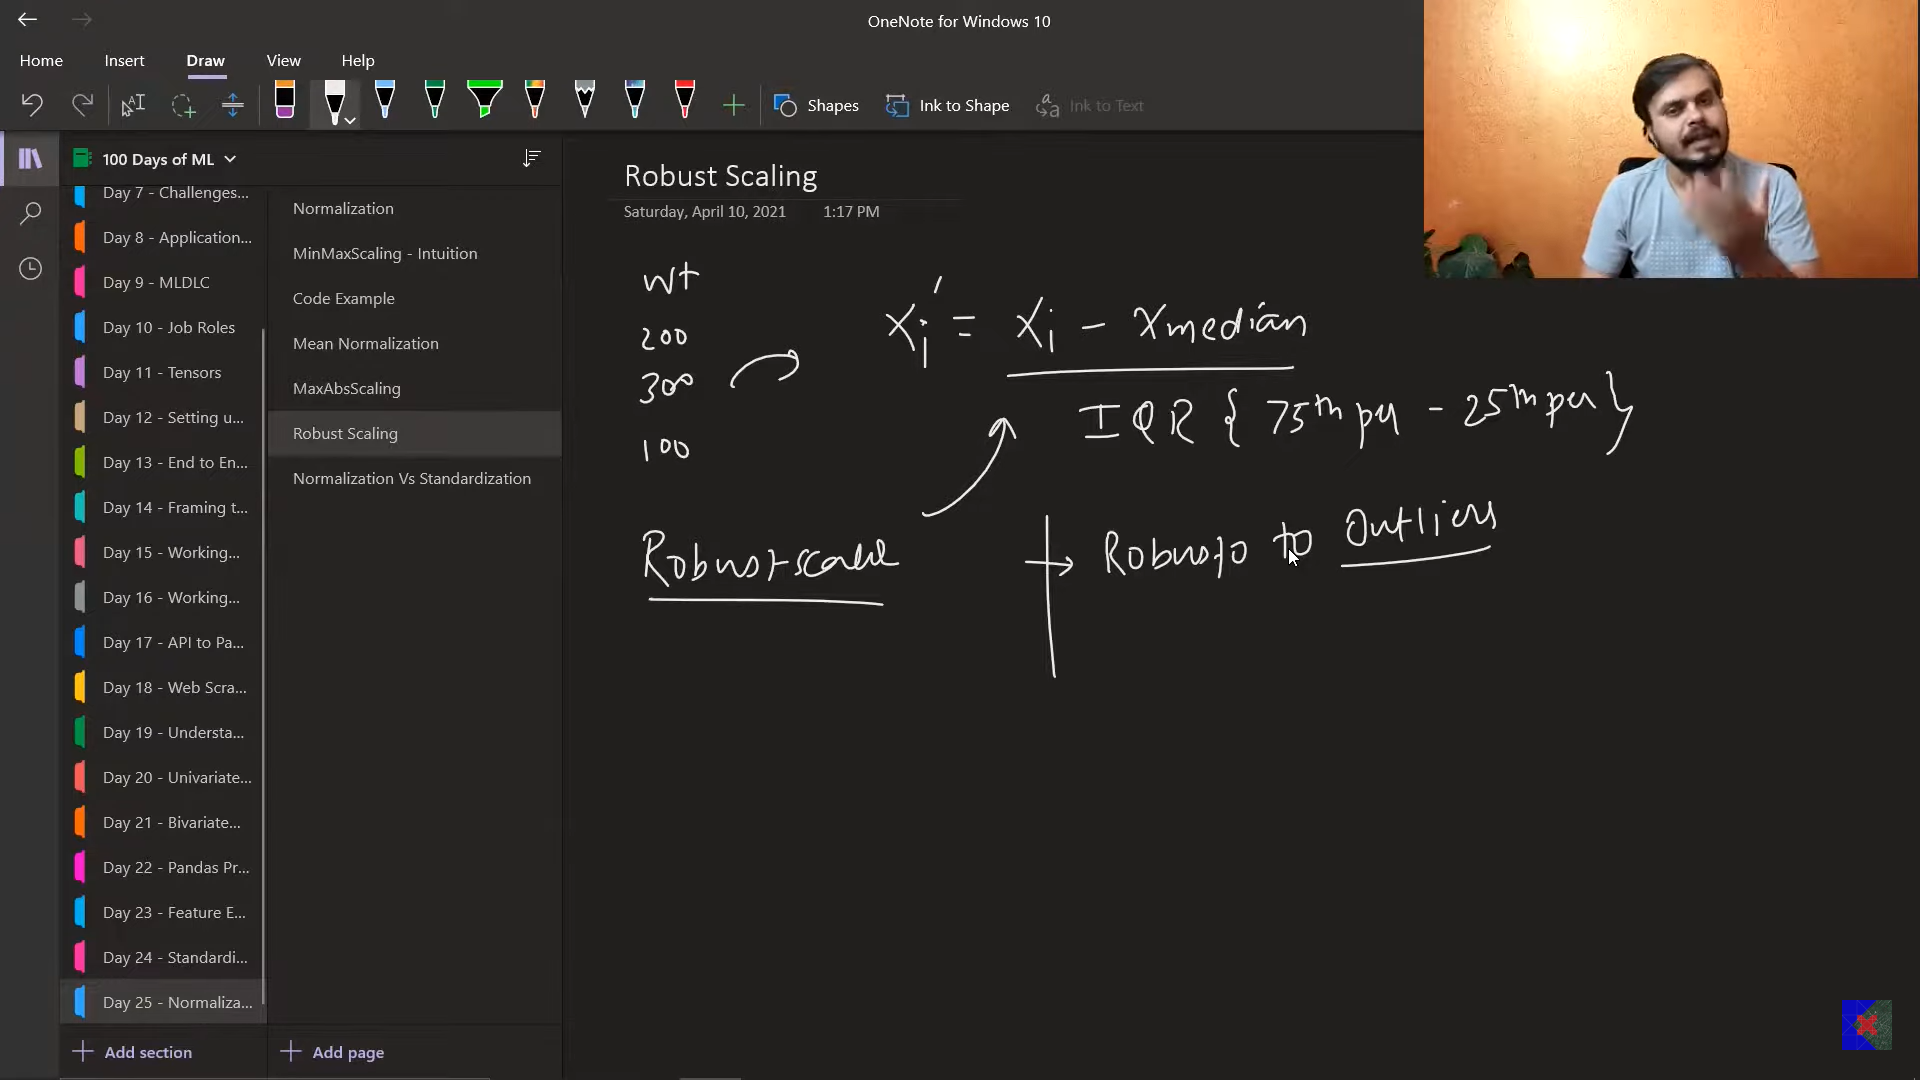 OneNote for Windows 10
Home Insert Draw View Help
Shapes Ink to Shape Ink to Text
100 Days of ML
Day 7 - Challenges...
Day 8 - Application...
Day 9 - MLDLC
Day 10 - Job Roles
Day 11 - Tensors
Day 12 - Setting u...
Day 13 - End to En...
Day 14 - Framing t...
Day 15 - Working...
Day 16 - Working...
Day 17 - API to Pa...
Day 18 - Web Scra...
Day 19 - Understa...
Day 20 - Univariate...
Day 21 - Bivariate...
Day 22 - Pandas Pr...
Day 23 - Feature E...
Day 24 - Standardi...
Day 25 - Normaliza...
Add section
Normalization
MinMaxScaling - Intuition
Code Example
Mean Normalization
MaxAbsScaling
Robust Scaling
Normalization Vs Standardization
Add page
Robust Scaling
Saturday, April 10, 2021 1:17 PM
wt
200
300
100
Xi' = Xi - Xmedian
IQR { 75th per - 25th per }
Robust to Outliers